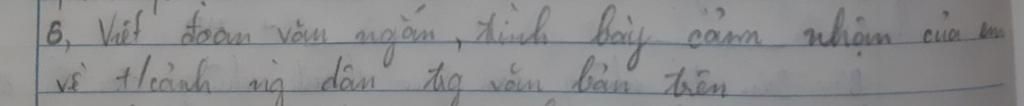 6, Viết đoạn văn ngắn, trình bày cảm nhận của em
về t/cảnh ng dân tg văn bản trên